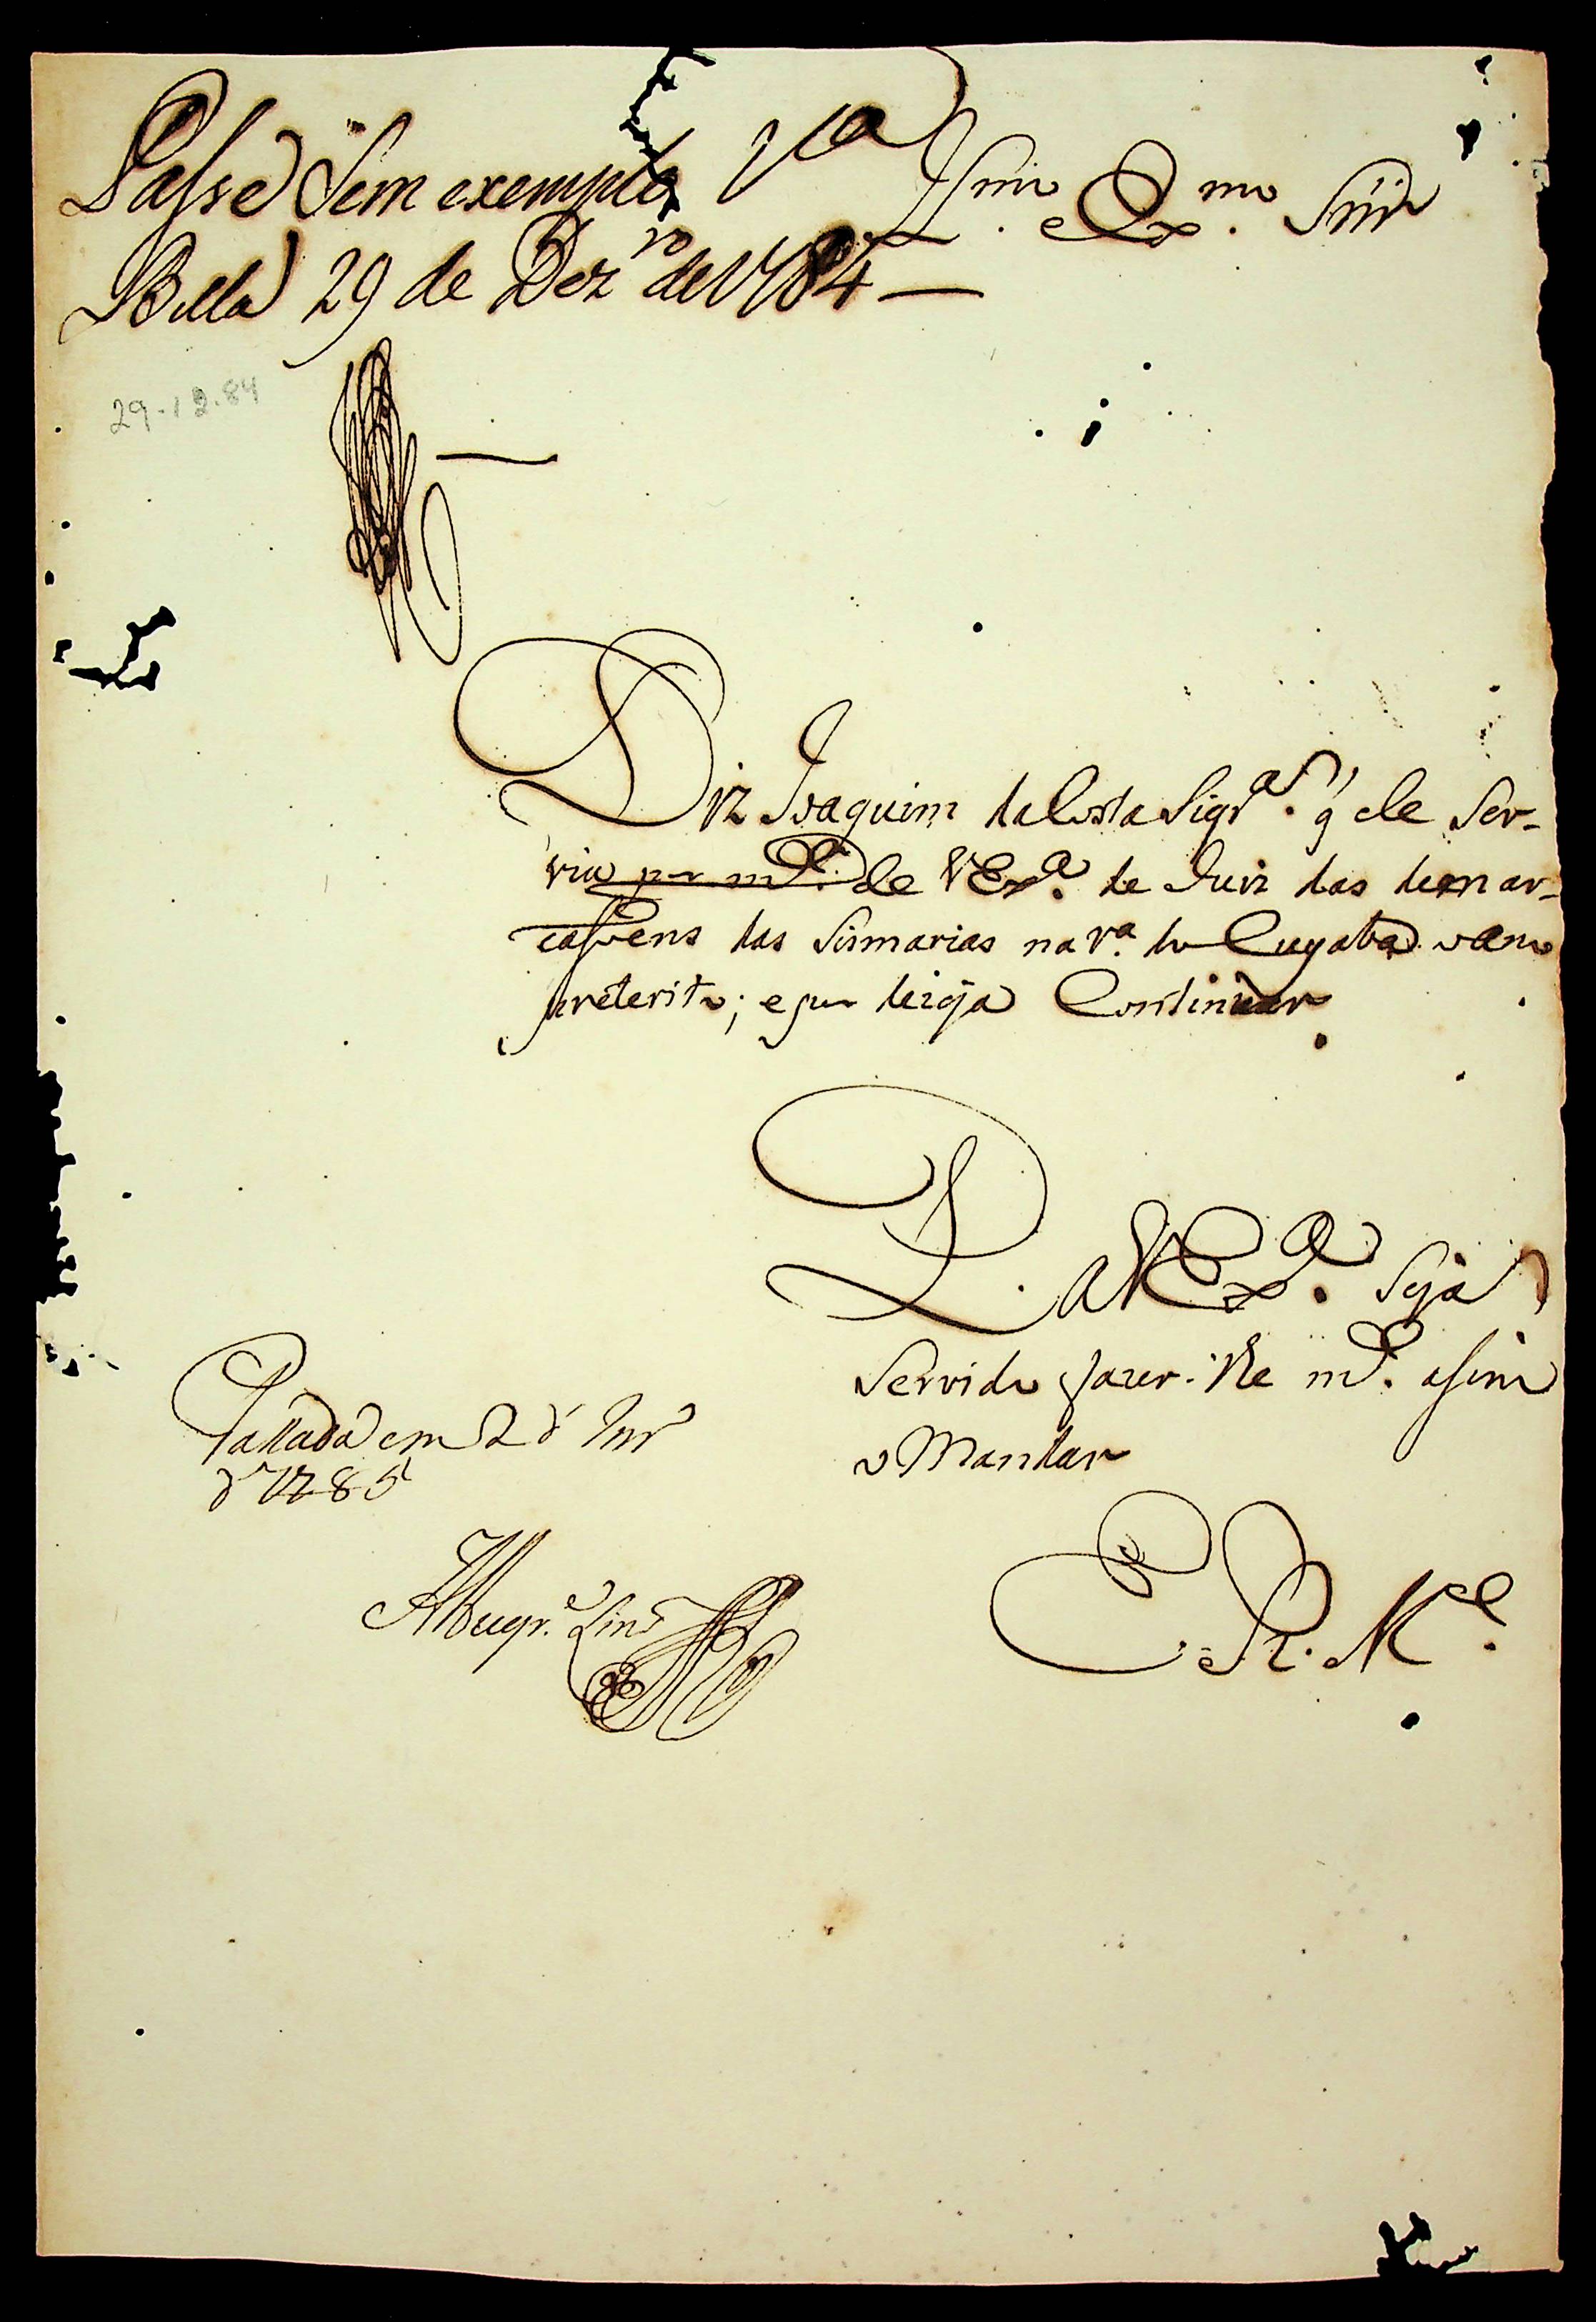 Passe Sem exemplo V.ª
Bella 29 de Dez.ro de 1784 —
Illmo. e Exmo. Snr̃
29-12-84
Diz Joaquim da Costa Siqr.ª q̃ ele Ser-
via por m.ce de VEx.ª de Juiz das demar-
casoens das Sismarias na r.ª do Cuyaba o ano
preterito; e por dezeja Continuar
P. a VEx.ª Seja
Servido fazer-lhe m.ce asim
o Mandar
E. R. M.ce
Passada em 2 d'
d' 1785
Albuqr.e